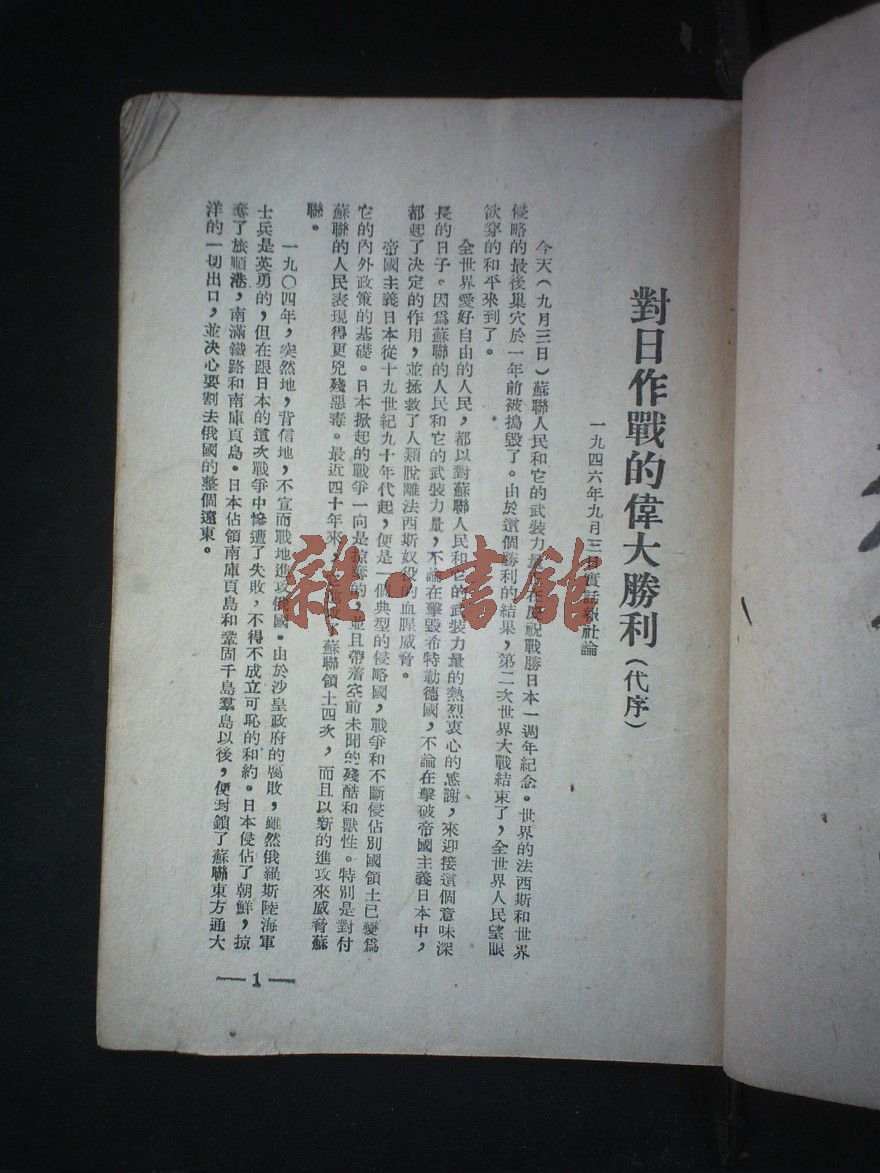 對日作戰的偉大勝利(代序)
一九四六年九月三日實話報社論
今天(九月三日)蘇聯人民和它的武裝力量 在慶祝戰勝日本一週年紀念。世界的法西斯和世界
侵略的最後巢穴於一年前被搗毀了。由於這個勝利的結果,第二次世界大戰結束了,全世界人民望眼
欲穿的和平來到了。
全世界愛好自由的人民,都以對蘇聯人民和它的武裝力量的熱烈衷心的感謝,來迎接這個意味深
長的日子。因爲蘇聯的人民和它的武裝力量,不論在擊毀希特勒德國,不論在擊破帝國主義日本中,
都起了決定的作用,並拯救了人類脫離法西斯奴役的血腥威脅。
帝國主義日本從十九世紀九十年代起,便是一個典型的侵略國,戰爭和不斷侵佔別國領土已變爲
它的內外政策的基礎。日本掀起的戰爭一向是掠奪的,並且帶着空前未聞的殘酷和獸性。特別是對付
蘇聯的人民表現得更兇殘惡毒。最近四十年來, 蘇聯領土四次,而且以新的進攻來威脅蘇
聯。
一九〇四年,突然地,背信地,不宣而戰地進攻俄國。由於沙皇政府的腐敗,雖然俄羅斯陸海軍
士兵是英勇的,但在跟日本的這次戰爭中慘遭了失敗,不得不成立可恥的和約。日本侵佔了朝鮮,掠
奪了旅順港,南滿鐵路和南庫頁島。日本佔領南庫頁島和鞏固千島羣島以後,便封鎖了蘇聯東方通大
洋的一切出口,並決心要割去俄國的整個遠東。
—1—
雜·書館